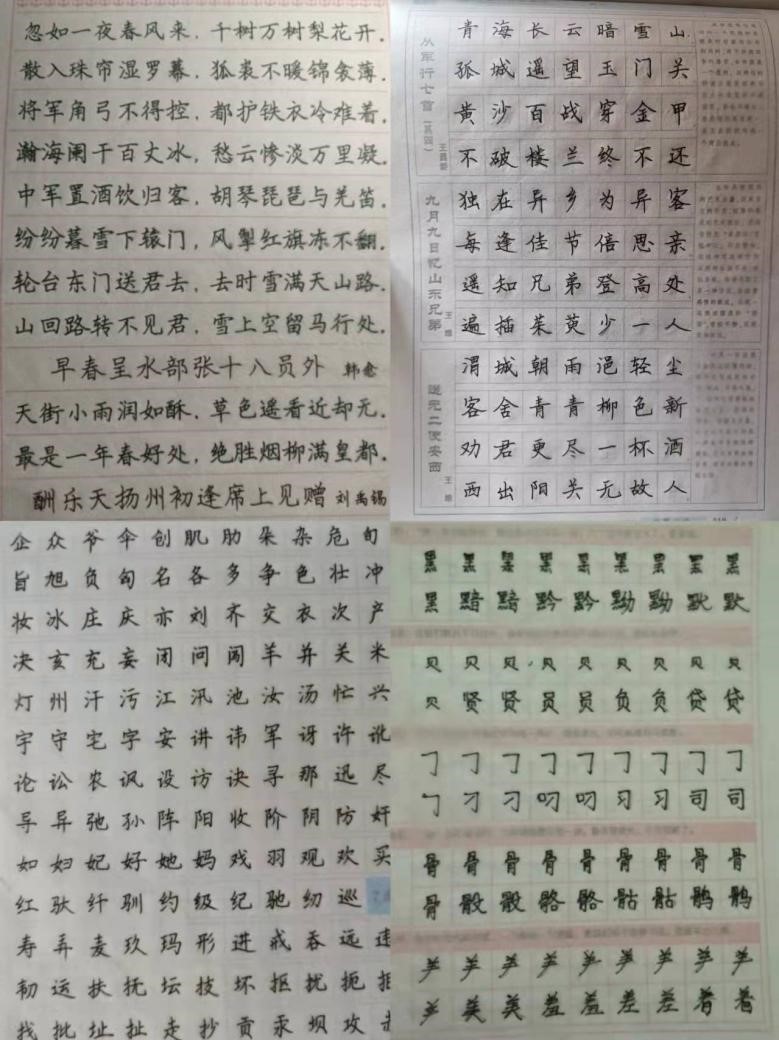 忽如一夜春风来，千树万树梨花开.
散入珠帘湿罗幕，狐裘不暖锦衾薄.
将军角弓不得控，都护铁衣冷难着.
瀚海阑干百丈冰，愁云惨淡万里凝.
中军置酒饮归客，胡琴琵琶与羌笛.
纷纷暮雪下辕门，风掣红旗冻不翻.
轮台东门送君去，去时雪满天山路.
山回路转不见君，雪上空留马行处.
早春呈水部张十八员外 韩愈
天街小雨润如酥，草色遥看近却无.
最是一年春好处，绝胜烟柳满皇都.
酬乐天扬州初逢席上见赠 刘禹锡
从军行七首（其四） 王昌龄
青海长云暗雪山
孤城遥望玉门关
黄沙百战穿金甲
不破楼兰终不还
九月九日忆山东兄弟 王维
独在异乡为异客
每逢佳节倍思亲
遥知兄弟登高处
遍插茱萸少一人
送元二使安西 王维
渭城朝雨浥轻尘
客舍青青柳色新
劝君更尽一杯酒
西出阳关无故人
企众爷伞创肌肋朵杂危旬
旨旭负匈名各多争色壮冲
妆冰庄庆亦刘齐交衣次产
决亥充妄闭问闯羊并关米
灯州汗污江汛池汝汤忙兴
宇守宅字安讲讳军讶许讹
论讼农讽设访诀寻那迅尽
导异弛孙阵阳收阶阴防奸
如妇妃好她妈戏羽观欢买
红驮纤驯约级纪驰纫巡
寿弄麦玖玛形进戒吞远违
韧运扶抚坛技坏抠扰扼拒
找批址扯走抄贡汞坝攻赤
黑黑黑黑黑黑黑黑黑
黑黯黯黔黔黝黝默默
贝贝贝贝贝贝贝贝贝
贝贤贤员员负负贷贷
刁刁习习司司
骨骨骨骨骨骨骨骨骨
骨骰骰骼骼骷骷鹘鹘
美美羞羞差差着着